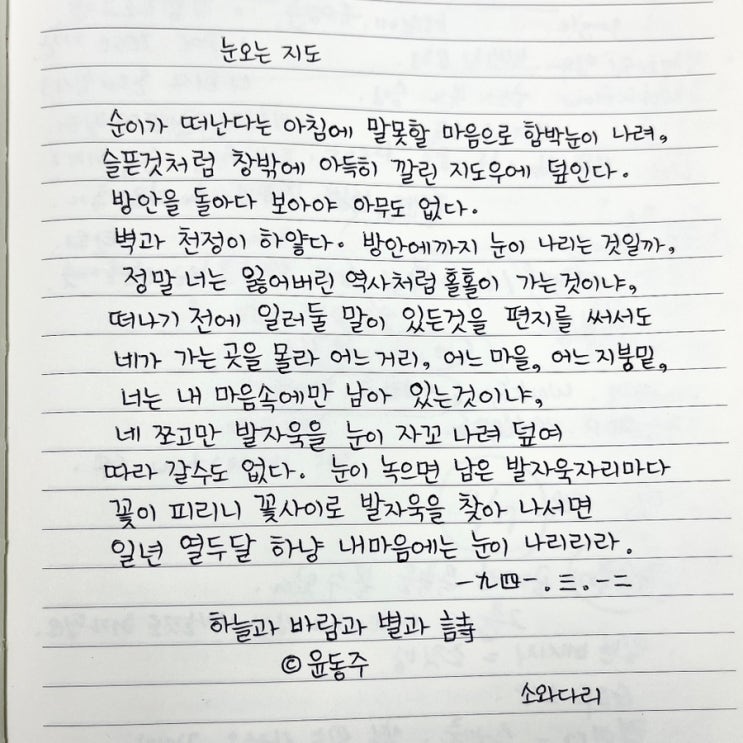 눈오는 지도
순이가 떠난다는 아침에 말못할 마음으로 함박눈이 나려,
슬픈것처럼 창밖에 아득히 깔린 지도우에 덮인다.
방안을 돌아다 보아야 아무도 없다.
벽과 천정이 하얗다. 방안에까지 눈이 나리는 것일까,
정말 너는 잃어버린 역사처럼 홀홀이 가는것이냐,
떠나기 전에 일러둘 말이 있든것을 편지를 써서도
네가 가는 곳을 몰라 어느거리, 어느 마을, 어느지붕밑,
너는 내 마음속에만 남아 있는것이냐,
네 쪼고만 발자욱을 눈이 자꼬 나려 덮여
따라 갈수도 없다. 눈이 녹으면 남은 발자욱자리마다
꽃이 피리니 꽃사이로 발자욱을 찾아 나서면
일년 열두달 하냥 내마음에는 눈이 나리리라.
一九四一.三.一二
하늘과 바람과 별과 詩
©윤동주
소와다리